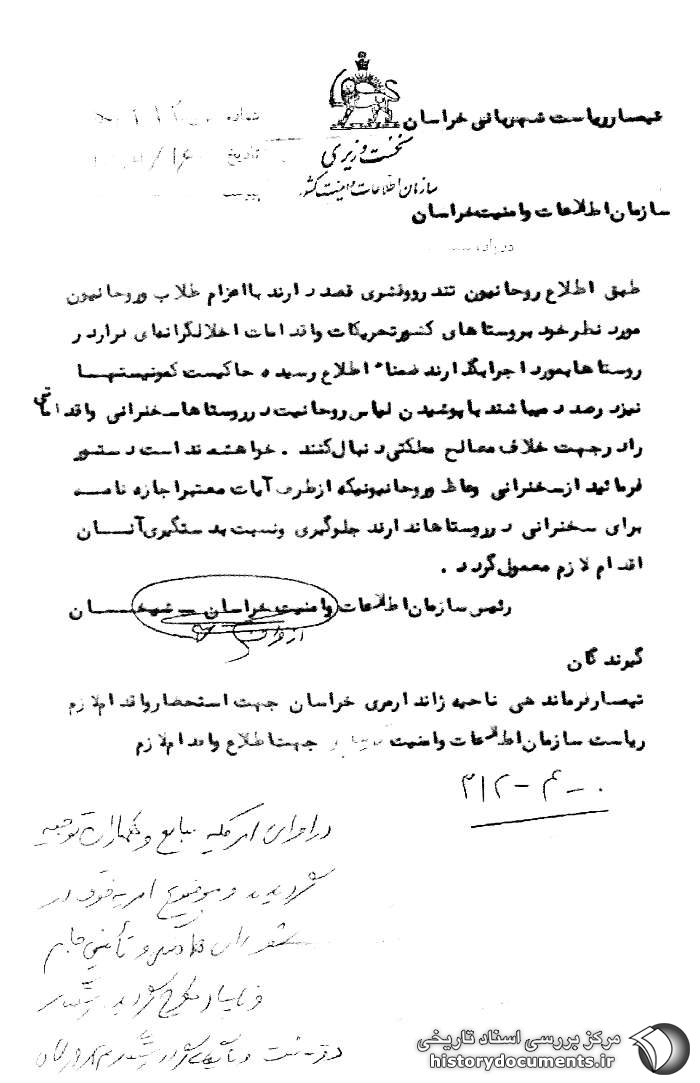 تیمسار ریاست شهربانی خراسان
نخست وزیری
سازمان اطلاعات و امنیت کشور
سازمان اطلاعات وامنیت خراسان
درباره
طبق اطلاع روحانیون تندرو وقشری قصد دارند بااعزام طلاب وروحانیون
مورد نظرخود بروستا های کشورتحریکات واقدامات اخلالگرانهای رادر
روستا هابمورد اجرابگذارند ضمنا" اطلاع رسیده حاکیست کمونیستهـا
نیزد رصد د میباشند با پوشیدن لباس روحانیت د رروستا هاسخنرانی واقداماتی
راد رجهت خلاف مصالح مملکتی د نبال کنند . خواهشمند است د ستور
فرمائید ازسخنرانی وعاظ وروحانیونیکه ازطرف آیات معتبراجازه نامـه
برای سخنرانی د رروستا هاند ارند جلوگیری ونسبت بد ستگیری آنـان
اقدام لازم معمول گرد د .
رئیس سازمان اطلاعات وامنیت خراسان ـ شیخـان
از طرف
گیرند گان
تیمسارفرماند هی ناحیه ژاند ارمری خراسان جهت استحضارواقدام لازم
ریاست سازمان اطلاعات وامنیت جهت اطلاع واقدام لازم
۳۱۲-۴۰۰
در اجرای امر کلیه منابع و همکاران توجیه
گردیدند و موضوع امریه فوق در
شورای هماهنگی و تأمین جام
و تایباد مطرح گردید
مرکز بررسی اسناد تاریخی
historydocuments.ir